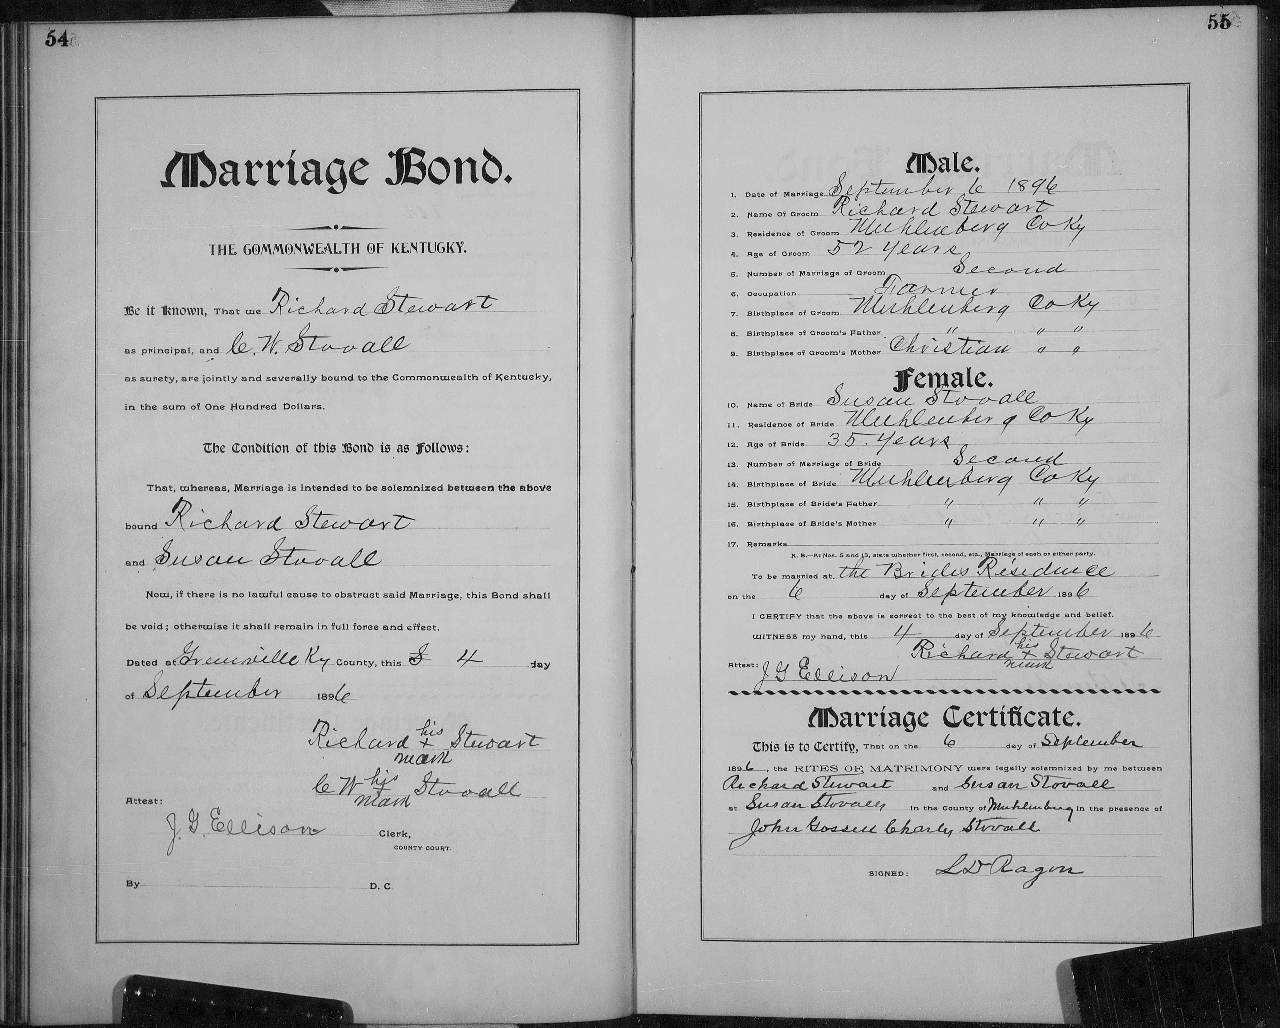 54
Marriage Bond.
THE COMMONWEALTH OF KENTUCKY.
Be it Known, That we Richard Stewart
as principal, and C. W. Stovall
as surety, are jointly and severally bound to the Commonwealth of Kentucky,
in the sum of One Hundred Dollars.
The Condition of this Bond is as Follows:
That, whereas, Marriage is intended to be solemnized between the above
bound Richard Stewart
and Susan Stovall
Now, if there is no lawful cause to obstruct said Marriage, this Bond shall
be void; otherwise it shall remain in full force and effect.
Dated at Greenville Ky County, this 4 day
of September 1896
Richard his x mark Stewart
C W his x mark Stovall
Attest:
J. G. Ellison Clerk,
COUNTY COURT.
By D. C.
55
Male.
1. Date of Marriage September 6 1896
2. Name Of Groom Richard Stewart
3. Residence of Groom Muhlenberg Co Ky
4. Age of Groom 52 years
5. Number of Marriage of Groom Second
6. Occupation Farmer
7. Birthplace of Groom Muhlenberg Co Ky
8. Birthplace of Groom's Father " " "
9. Birthplace of Groom's Mother Christian " "
Female.
10. Name of Bride Susan Stovall
11. Residence of Bride Muhlenberg Co Ky
12. Age of Bride 35. years
13. Number of Marriage of Bride Second
14. Birthplace of Bride Muhlenberg Co Ky
15. Birthplace of Bride's Father " " "
16. Birthplace of Bride's Mother " " "
17. Remarks
N. B.—At Nos. 5 and 13, state whether first, second, etc., Marriage of each or either party.
To be married at the Brides Residence
on the 6 day of September 1896
I CERTIFY that the above is correct to the best of my knowledge and belief.
WITNESS my hand, this 4 day of September 1896
Richard his x mark Stewart
Attest: J G Ellison
Marriage Certificate.
This is to Certify, That on the 6 day of September
1896, the RITES OF MATRIMONY were legally solemnized by me between
Richard Stewart and Susan Stovall
at Susan Stovalls in the County of Muhlenburg in the presence of
John Gossett Charly Stovall
SIGNED: L D Ragon